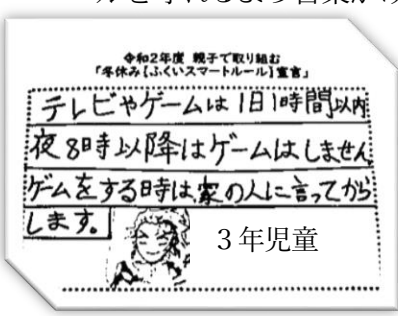 令和2年度 親子で取り組む
「冬休み【ふくいスマートルール】宣言」
テレビやゲームは1日1時間以内
夜8時以降はゲームはしません
ゲームをする時は、家の人に言ってから
します。
3年児童